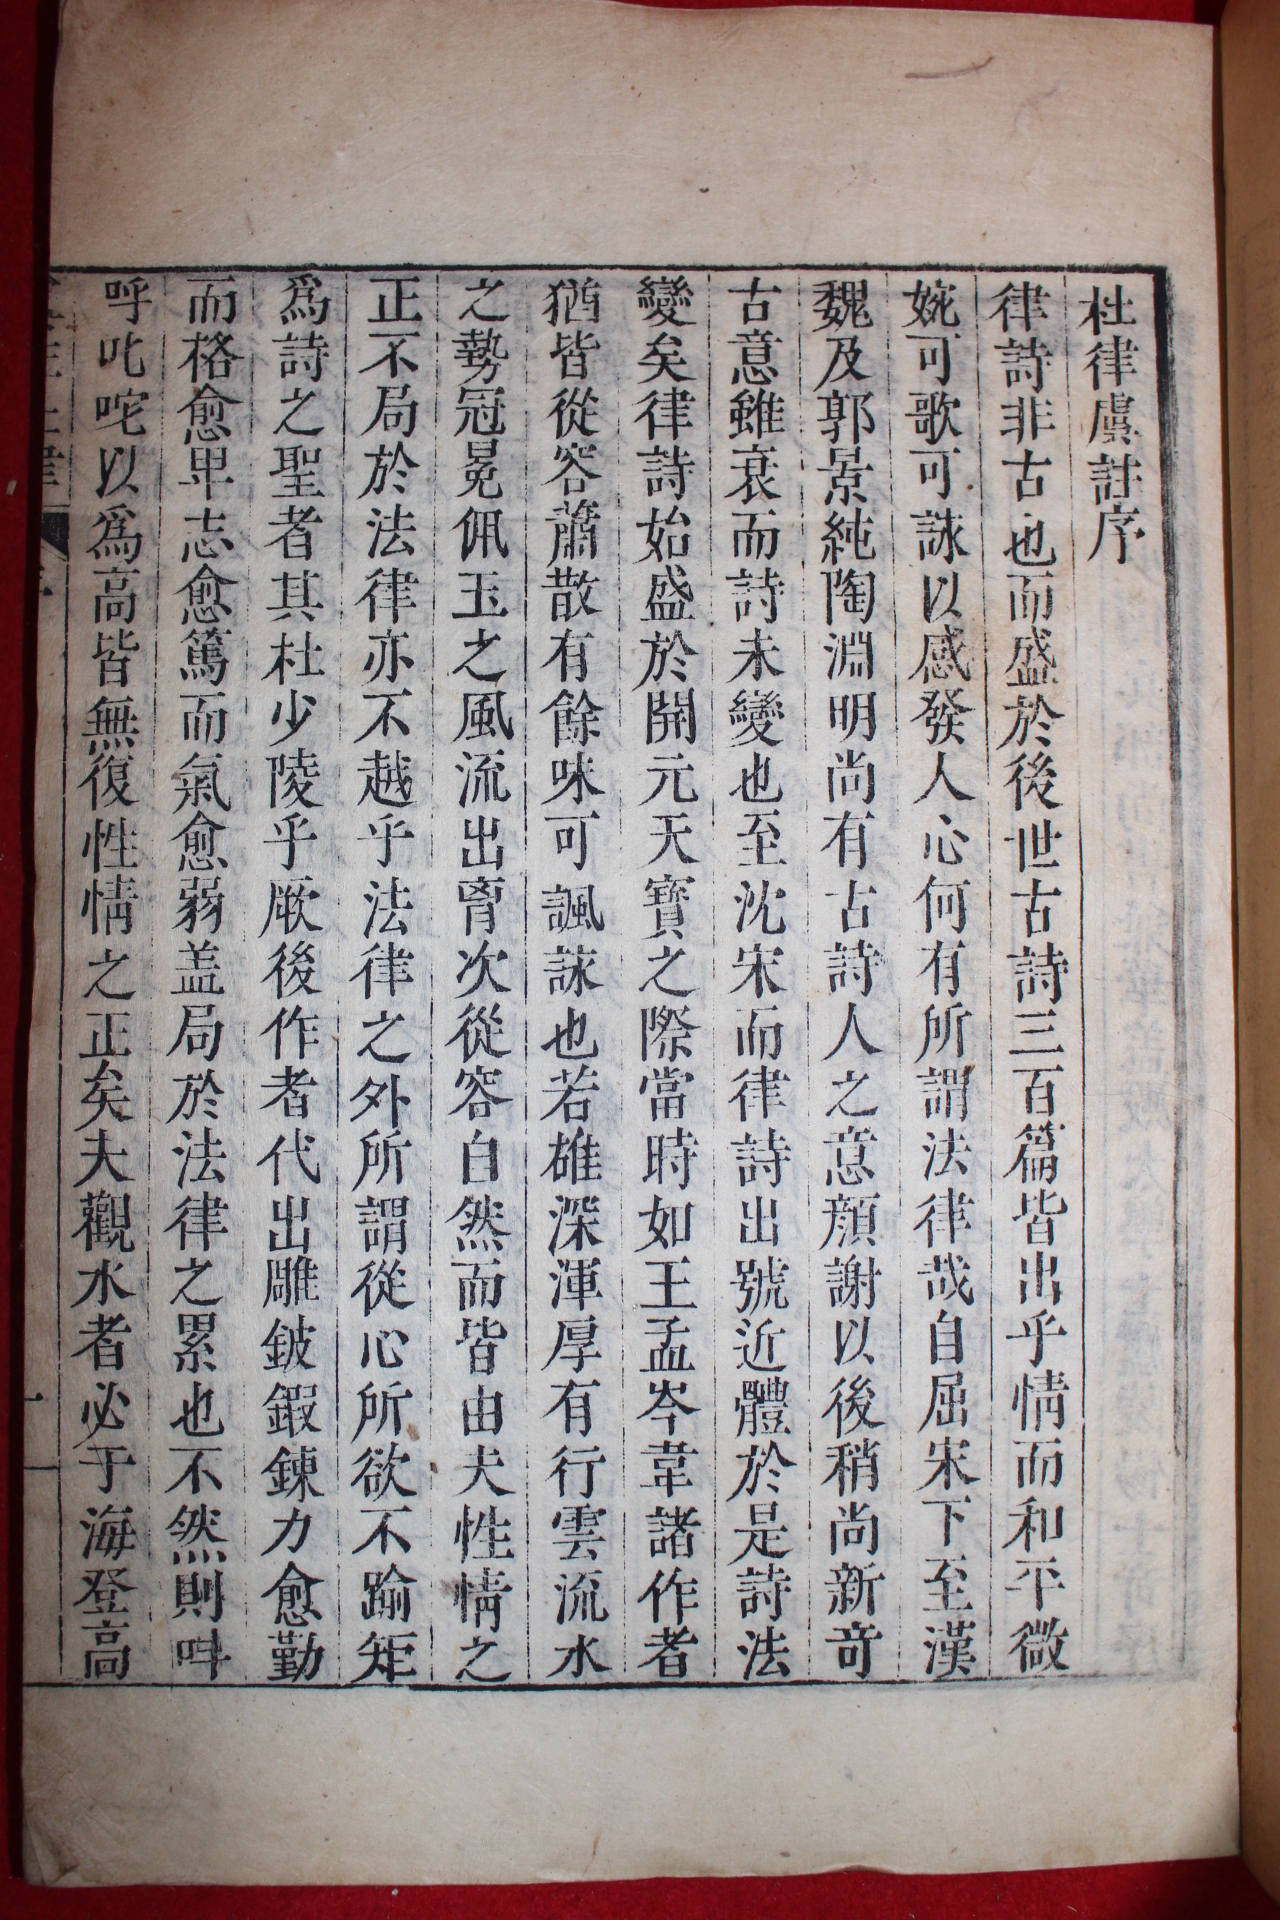 杜律虞註序
律詩非古也而盛於後世古詩三百篇皆出乎情而和平微
婉可歌可詠以感發人心何有所謂法律哉自屈宋下至漢
魏及郭景純陶淵明尚有古詩人之意顔謝以後稍尚新竒
古意雖衰而詩未變也至沈宋而律詩出號近體於是詩法
變矣律詩始盛於開元天寶之際當時如王孟岑韋諸作者
猶皆從容蕭散有餘味可諷詠也若雄深渾厚有行雲流水
之勢冠冕佩玉之風流出胷次從容自然而皆由夫性情之
正不局於法律亦不越乎法律之外所謂從心所欲不踰矩
爲詩之聖者其杜少陵乎厥後作者代出雕鈹鍜鍊力愈勤
而格愈卑志愈篤而氣愈弱盖局於法律之累也不然則呌
呼叱咤以爲高皆無復性情之正矣夫觀水者必于海登高